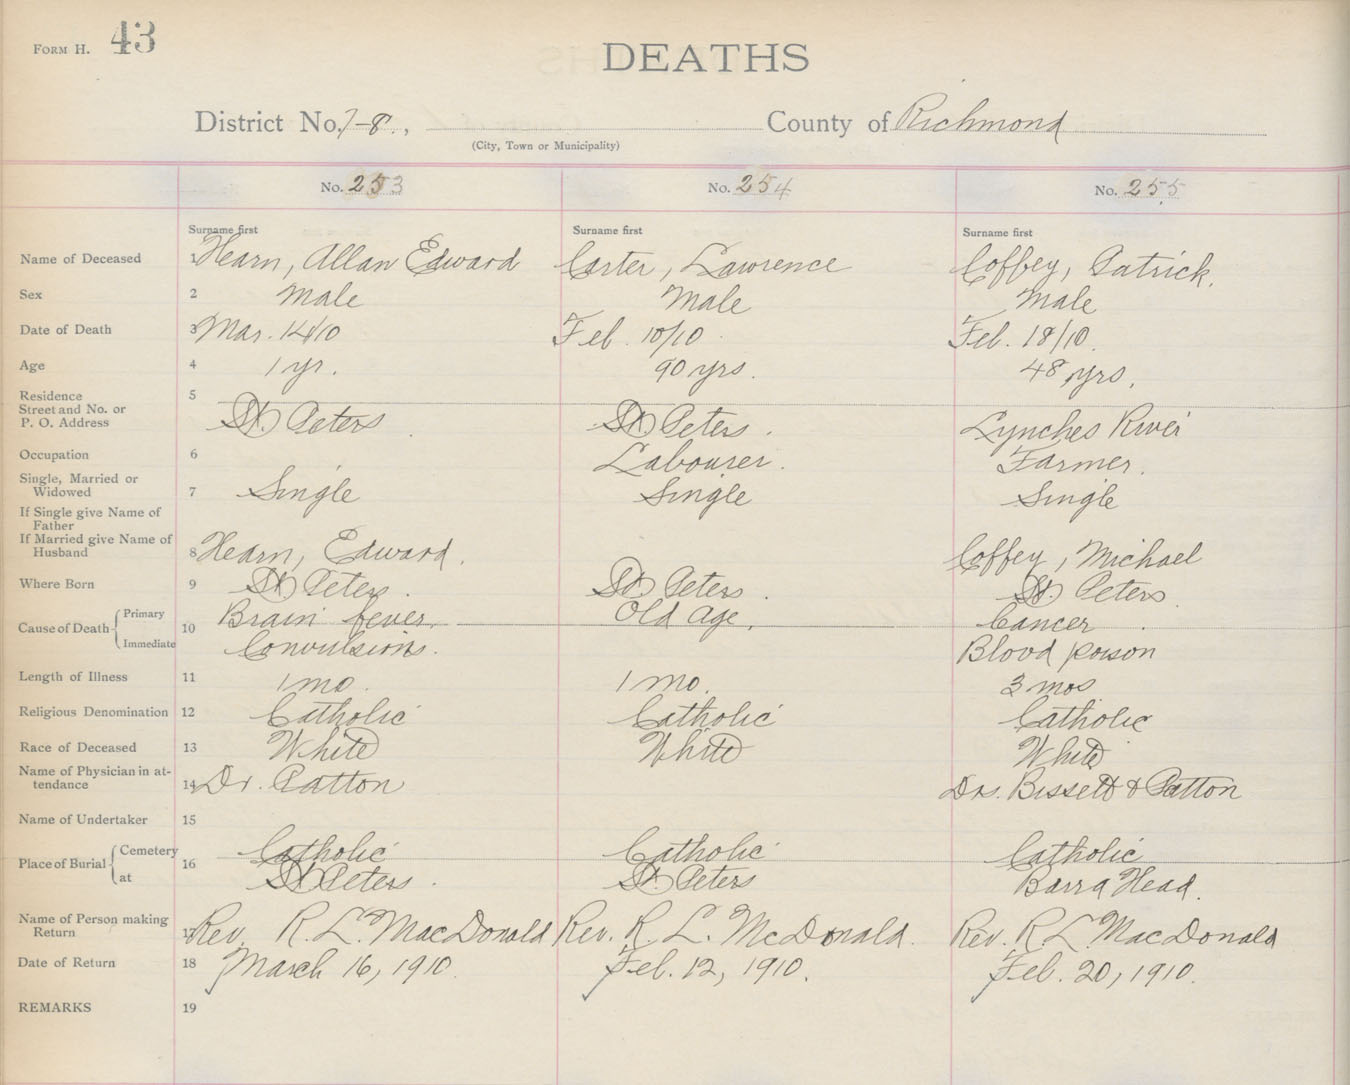 FORM H. 43
DEATHS
District No. 7-8., County of Richmond
(City, Town or Municipality)
No. 253 No. 254 No. 255
Surname first Surname first Surname first
Name of Deceased 1 Hearn, Allan Edward Carter, Lawrence Coffey, Patrick.
Sex 2 Male Male Male
Date of Death 3 Mar. 14/10 Feb. 10/10 Feb. 18/10.
Age 4 1 yr. 90 yrs. 48 yrs.
Residence 5
Street and No. or
P. O. Address St. Peters St. Peters. Lynches River
Occupation 6 Labourer. Farmer.
Single, Married or
Widowed 7 Single Single Single
If Single give Name of
Father
If Married give Name of
Husband 8 Hearn, Edward. Coffey, Michael
Where Born 9 St. Peters. St. Peters. St. Peters.
Cause of Death 10 Primary Brain fever. Old age. Cancer.
Immediate Convulsions. Blood poison
Length of Illness 11 1 mo. 1 mo. 3 mos
Religious Denomination 12 Catholic Catholic Catholic
Race of Deceased 13 White White White
Name of Physician in at-
tendance 14 Dr. Patton Drs. Bissett & Patton
Name of Undertaker 15
Place of Burial 16 Cemetery Catholic Catholic Catholic
at St. Peters. St. Peters Barra Head.
Name of Person making
Return 17 Rev. R. L. MacDonald Rev. R. L. McDonald. Rev. R L MacDonald
Date of Return 18 March 16, 1910. Feb. 12, 1910. Feb. 20, 1910.
REMARKS 19